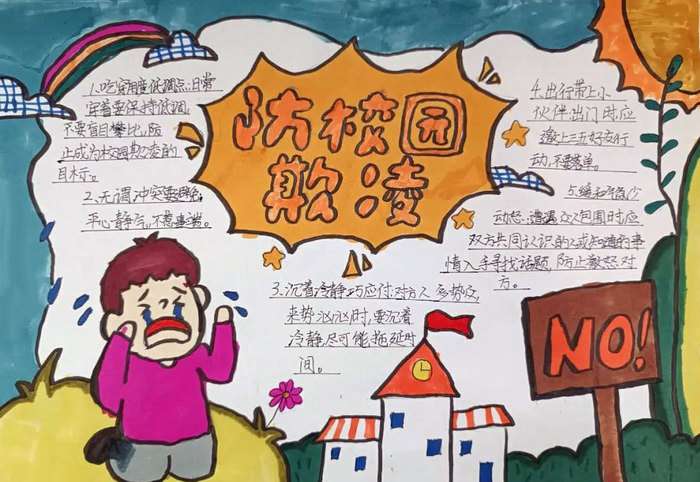 防校园
欺凌
1.吃穿用度低调点,日常
穿着要保持低调,
不要盲目攀比,防
止成为校园欺凌的
目标。
2、无谓冲突要避免,
平心静气,不惹事端。
3.沉着冷静巧应付:对方人多势众,
来势汹汹时,要沉着
冷静尽可能拖延时
间。
4.出行带上小
伙伴:出门时应
邀上三五好友行
动,不要落单。
动怒:遭遇
包围时应
双方共同认识的人或知道的事
情入手寻找话题,防止激怒对
方。
NO!